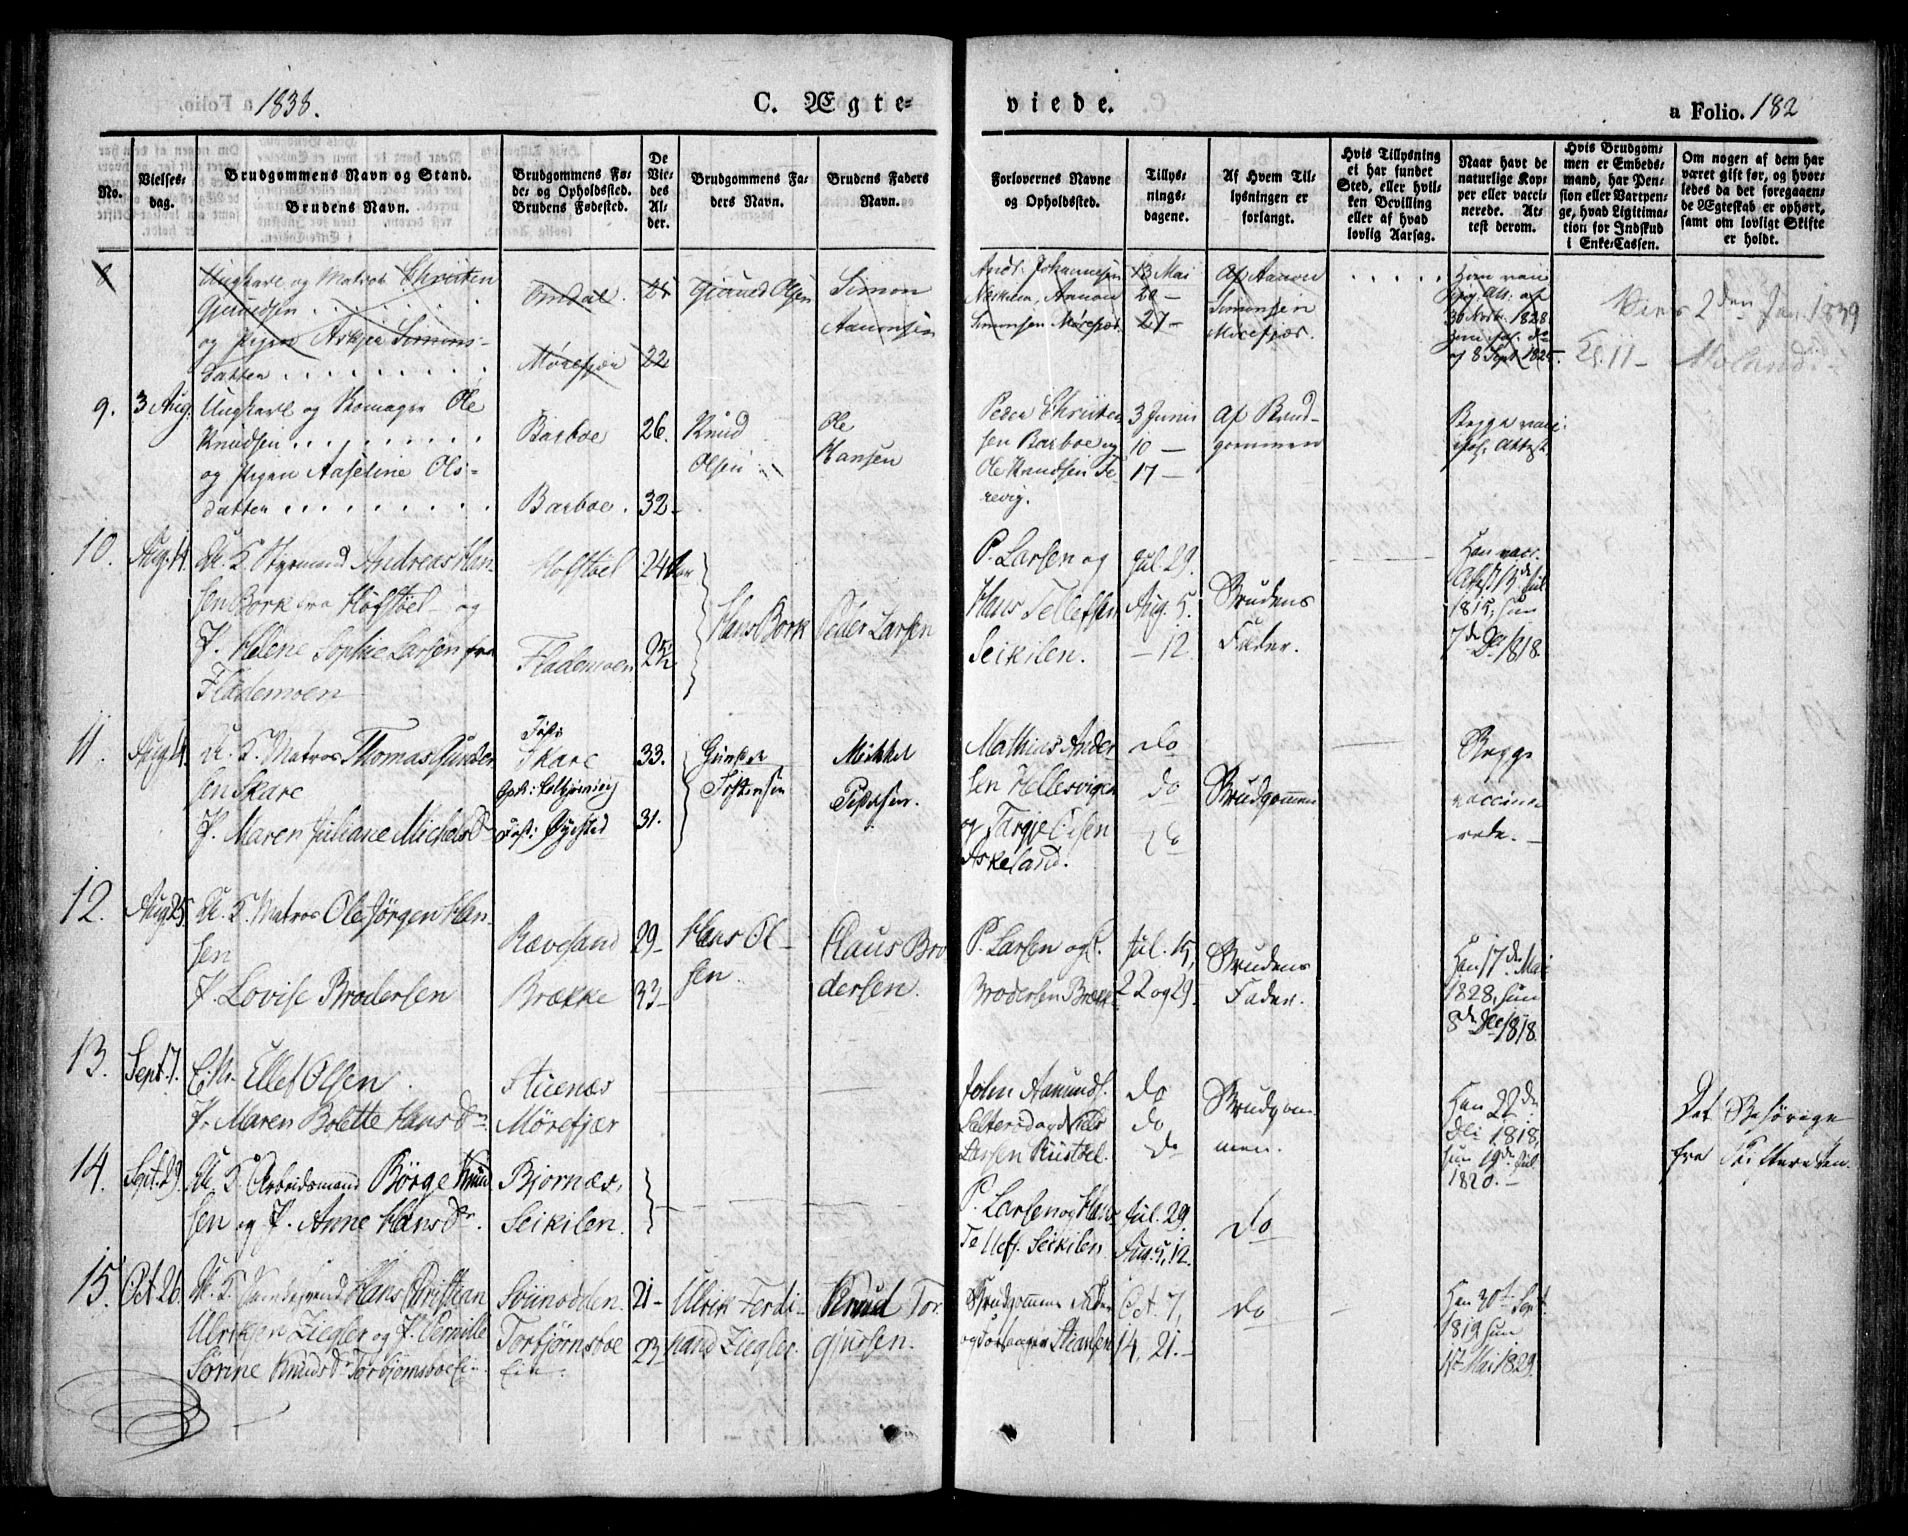 1838.
C. Ægte-
viede.
a Folio. 182
No.
Vielses-
dag.
Brudgommens Navn og Stand.
Brudens Navn.
Brudgommens Fø-
de- og Opholdssted.
Brudens Fødested.
De
Vie-
des
Al-
der.
Brudgommens Fa-
ders Navn.
Brudens Faders
Navn.
Forlovernes Navne
og Opholdssted.
Tillys-
nings-
dagene.
Af Hvem Til-
lysningen er
forlangt.
Hvis Tillysning
ei har fundet
Sted, eller hvil-
ken Bevilling
eller af hvad
lovlig Aarsag.
Naar havt de
naturlige Kop-
per eller vacci-
nerede. At-
test derom.
Hvis Brudgom-
men er Embeds-
mand, har Pen-
sion eller Vartpen-
ge, hvad Legitima-
tion for Indskud
i Enke-Cassen.
Om nogen af dem har
været gift før, og hvor-
ledes da det foregaaen-
de Ægteskab er ophørt,
samt om lovligt Skifte
er holdt.
8
Ungkarl og Matros Christen
Gjerudsen
og Pigen Simons-
datter
Omdal
Mørefjær
22
Gjerued Olsen
Simon
Aanonsen
Andr. Johannesen
Aanon
Simonsen Mørefjær
13 Mai
20 —
27 —
Af Aanon
Simonsen
Mørefjær.
1828
8 Sept. 1825.
2den Jan. 1839
9.
3 Aug.
Ungkarl og Skomager Ole
Knudsen
og Pigen Aaseline Ols-
datter
Barboe
Barboe.
26.
32 —
Knud
Olsen
Ole
Hansen
Peder Christen-
sen Barboe og
Ole Knudsen Te-
revig.
3 Junii
10 —
17 —
Af Brud-
gommen
Begge vacc.
Attest
10.
Aug. 14.
U. K. Styrmand Andreas Han-
sen Bork fra Hofstöel — og
P. Helene Sophie Larsen fra
Fladenvoen
Hofstöel
Fladenvoen
24
25½
Hans Bork
Peder Larsen
P. Larsen og
Hans Tellefsen
Seikilen.
Jul. 29.
Aug. 5.
— 12.
Brudens
Fader.
Han vacc.
1815, hun
7de De 1818.
11.
Aug. 14.
U. K. Matros Thomas Gunder-
sen Skare
P. Maren Juliane Michelsd
Skare
Øyestad
33.
31.
Tostensen
Mikkel
Pedersen.
Mathias Ander-
sen Hellesvigen
og Targje Olsen
Askeland.
do
do
do
Brudgommen
Begge
vaccine-
rede. —
12.
Aug. 25.
U. K. Matros Ole Jørgen Han-
sen
P. Lovise Brodersen
Rævesand
Brække
29 —
33 —
Hans Ol-
sen.
Claus Bro-
dersen.
P. Larsen og
Brodersen Bræk
Jul. 15,
22 og 29.
Brudens
Fader.
Han 17de Mai
1828, hun
8de Dec 1818.
13.
Sept. 7.
E. M. Ellef Olsen.
P. Maren Bolette Hansd
Stuenæs
Mørefjær
John Aamunds.
og Niels
Larsen
do
do
do
Brudgom-
men.
Han 22de
Dec 1818,
hun 19de Jul
1820. —
Det Behørige
fra Skifteretten.
14.
Sept. 29.
U. K. Arbeidsmand Börge Knud-
sen og P. Anne Hansd.
Bjornæs,
Seikilen.
P. Larsen og Hans
Tellefs. Seikilen
Jul. 29.
Aug. 5, 12.
do
15.
Oct 26.
U. K. Hans Christian
Ulriksen Ziegler og P. Pernille
Sorine Knudsd. Torbjørnsboe
Torbjørnsboe
21 —
23 —
Ulrik Ferdi-
nand Ziegler.
Knud Tor-
gjusen.
Brudgommens Fader
og
Oct 7,
14, 21. —
do
Han 30te Sept.
1819 hun
1ste Mai 1829.